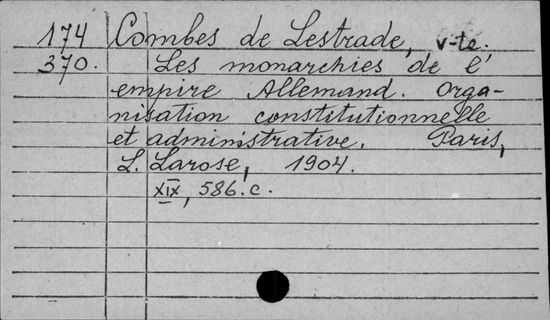 174 Combes de Lestrade, v-te.
370. Les monarchies de l'
empire Allemand. Orga-
nisation constitutionnelle
et administrative. Paris,
L. Larose, 1904.
XIX, 586.c.